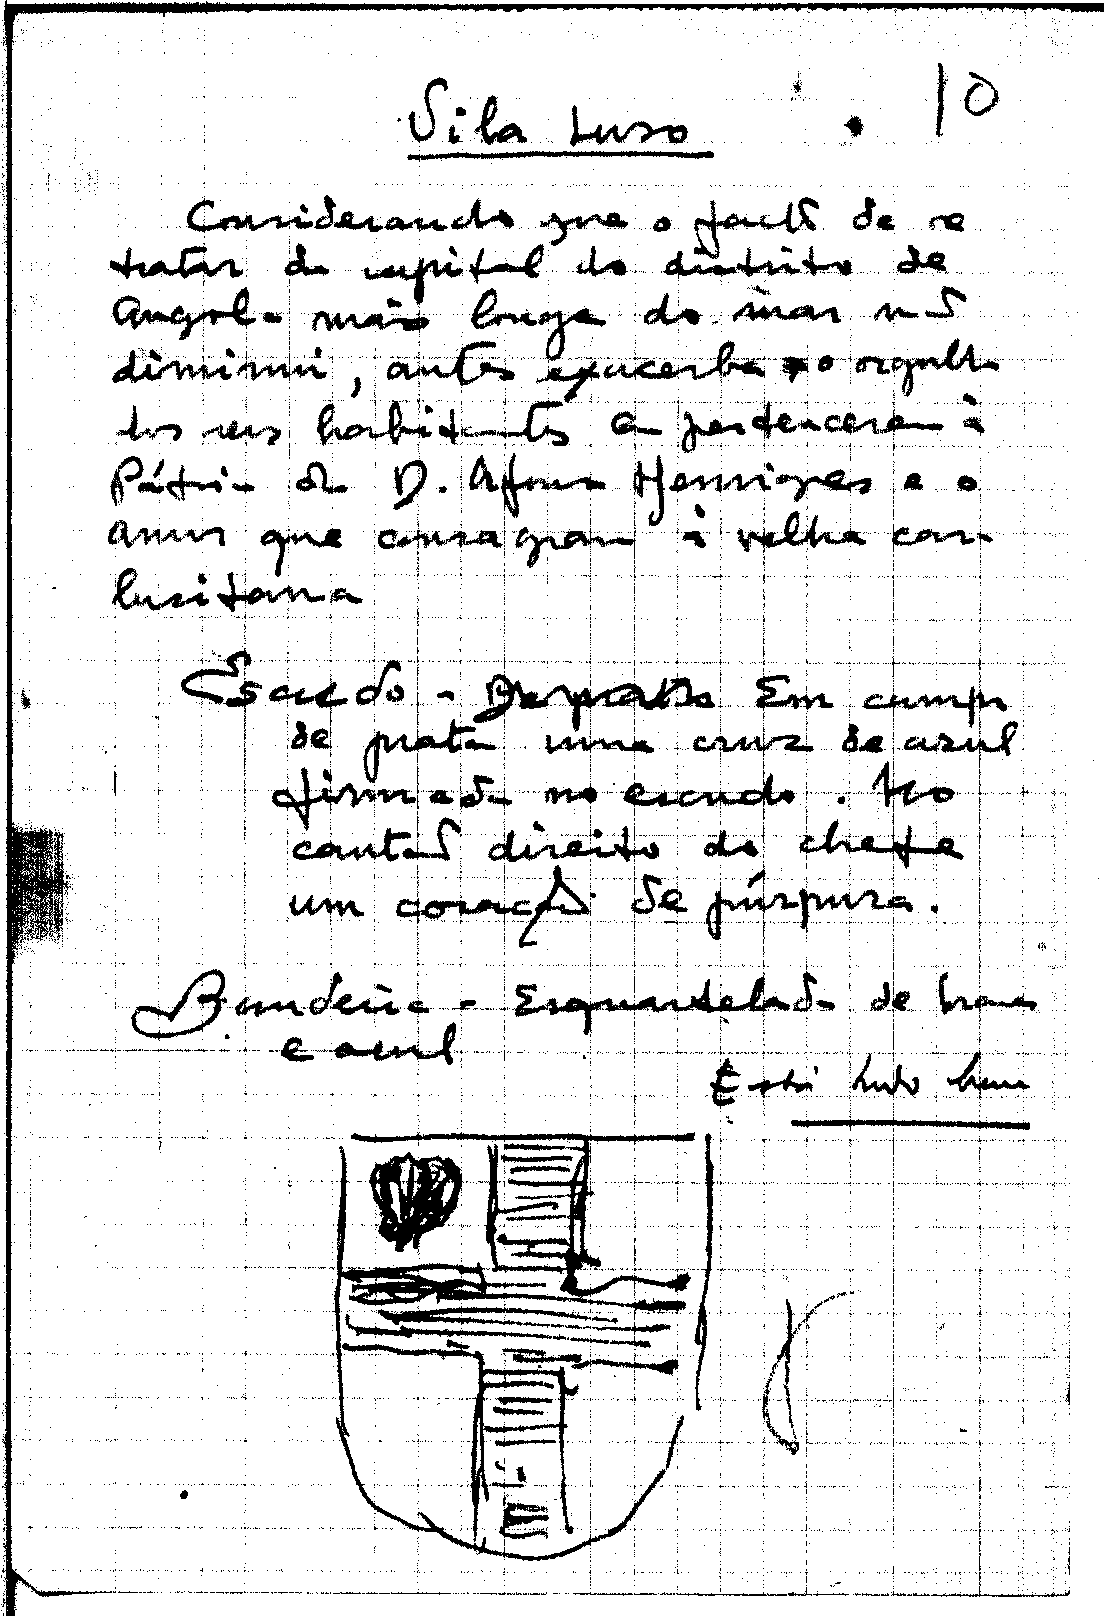 10
Vila Luso
Considerando que o facto de se
tratar da capital do distrito de
Angola mais longe do mar não
diminui, antes exacerba o orgulho
dos seus habitantes em pertencerem à
Pátria de D. Afonso Henriques e o
amor que consagram à velha casa
lusitana
Escudo - De prata Em campo
de prata uma cruz de azul
firmada no escudo. No
cantão direito do chefe
um coração de púrpura.
Bandeira - Esquartelada de branco
e azul
Está tudo bem